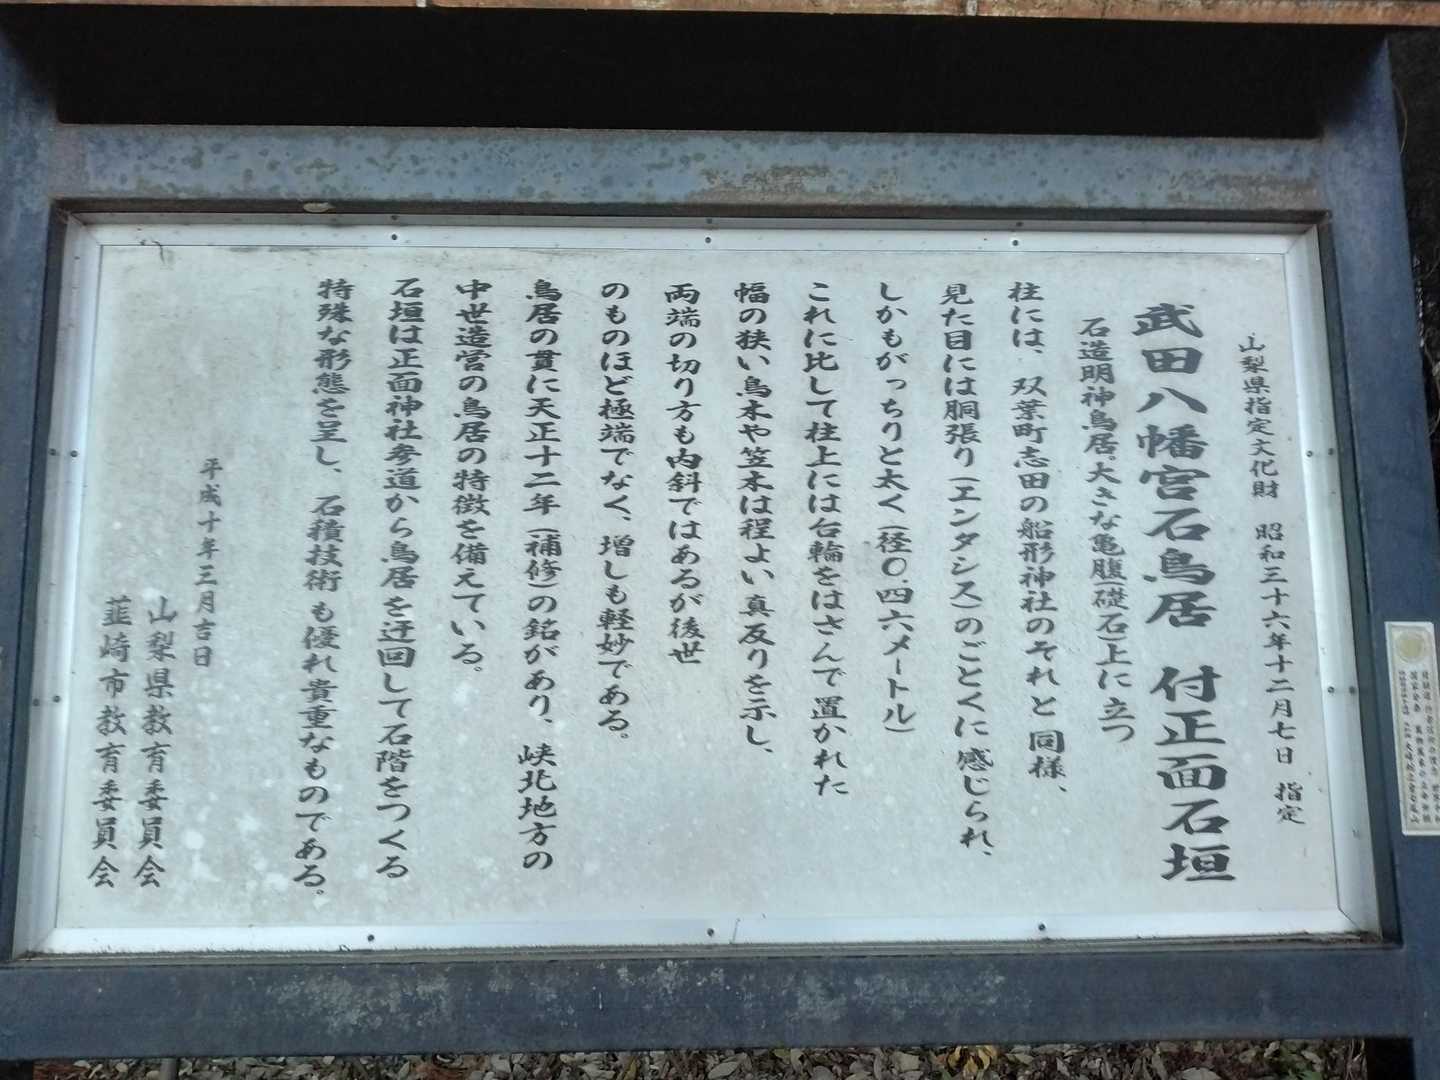 山梨県指定文化財　昭和三十六年十二月七日　指定
武田八幡宮石鳥居　付正面石垣
石造明神鳥居。大きな亀腹(礎石)上に立つ
柱には、双葉町志田の船形神社のそれと同様、
見た目には胴張り(エンタシス)のごとくに感じられ、
しかもがっちりと太く(径〇.四六メートル)
これに比して柱上には台輪をはさんで置かれた
幅の狭い鳥木や笠木は程よい真反りを示し、
両端の切り方も内斜ではあるが後世
のものほど極端でなく、増しも軽妙である。
鳥居の貫に天正十二年(補修)の銘があり、峡北地方の
中世造営の鳥居の特徴を備えている。
石垣は正面神社参道から鳥居を迂回して石階をつくる
特殊な形態を呈し、石積技術も優れ貴重なものである。
平成十年三月吉日
山梨県教育委員会
韮崎市教育委員会